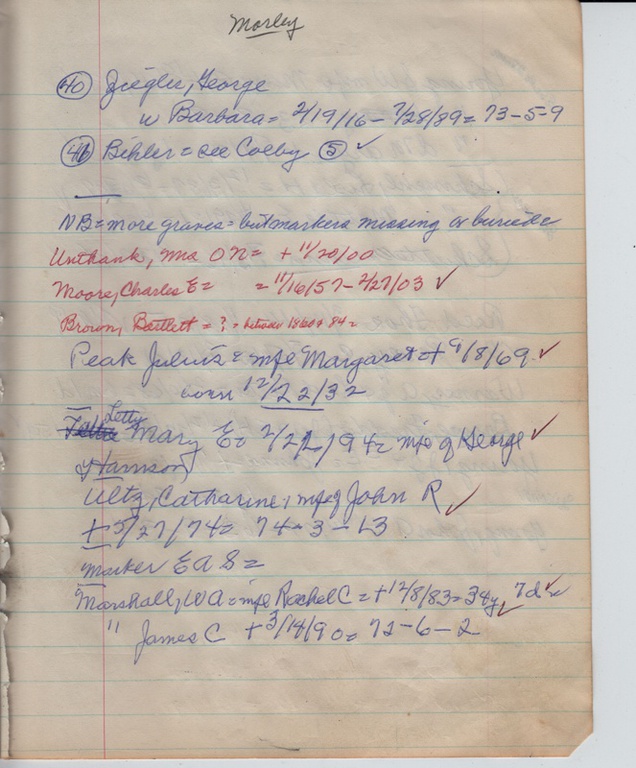 Morley
40 Ziegler, George
w Barbara = 2/19/16 - 7/28/89 = 73-5-9
Bihler = see Colby 5 ✓
NB = more graves = but markers missing or buried =
Unthank, = + 11/20/00
Moore, Charles E = = 11/16/57 - 2/27/03 ✓
Brown, Bartlett = ? = between 1860 & 84 =
Peak = Margaret = + 9/8/69 ✓
born 12/22/32
Letty Mary E = 2/22/94 = of George ✓
Harrison
Ultz, Catharine, of John R ✓
+ 5/27/74 = 74-3-13
marker E A S =
Marshall, W A = Rachel C = + 12/8/83 = 34y, 7d ✓
" James C + 3/14/90 = 72-6-2 ✓